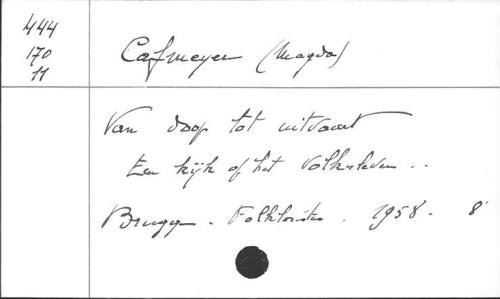 444
170
11
Cafmeyer (Magda)
Van doop tot uitvaart
Een kijk op het volksleven ..
Brugge. 1958. 8°